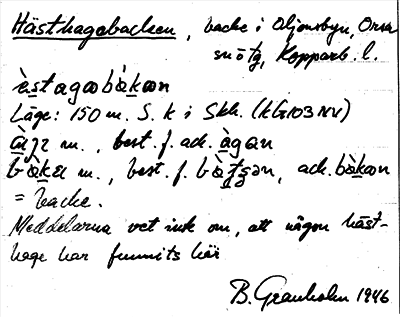 Hästhagabacken, backe i Oljonsbyn, Orsa
snötg, Kopparb. l.
èstagabòkan
Läge: 150 m. S. k i Skh. (kG103NV)
àgɪ m., best. f. ack. àgan
bàkɪ m., best. f. bàtsən, ack. bàkan
= backe.
Meddelarna vet inte om, att någon häst-
hage har funnits här
B. Granholm 1946